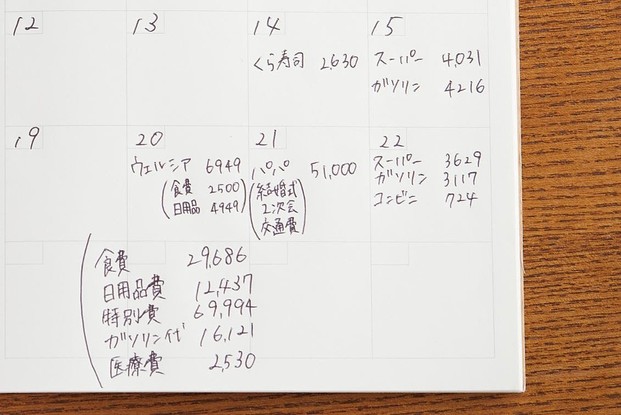 12
13
14
くら寿司 2,630
15
スーパー 4,031
ガソリン 4216
19
20
ウェルシア 6949
(食費 2500
日用品 4949)
21
パパ 51,000
(結婚式
2次会
交通費)
22
スーパー 3629
ガソリン 3117
コンビニ 724
食費 29,686
日用品費 12,437
特別費 69,994
ガソリン代 16,121
医療費 2,530